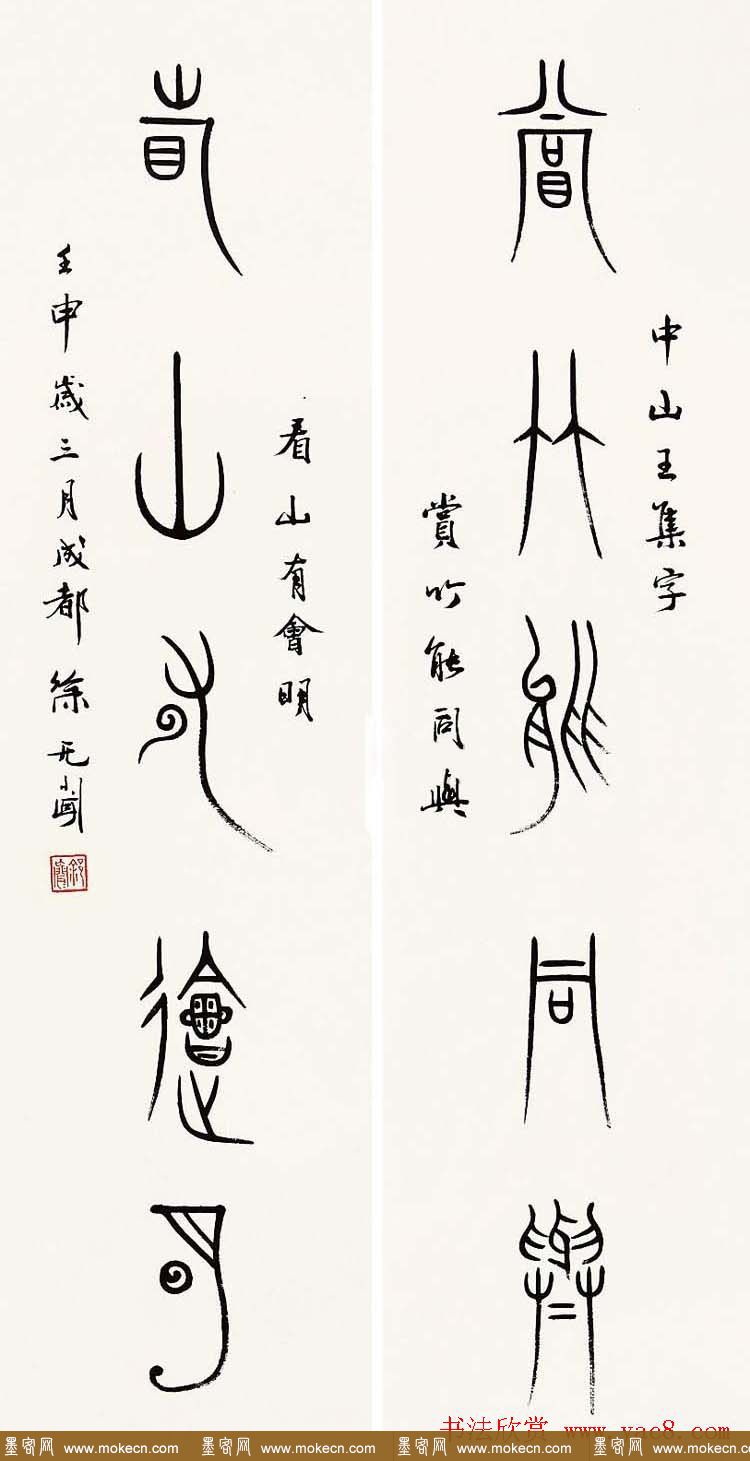 中山王集字
賞竹能同與
賞竹能同與
看山有會明
看山有會明
壬申歲三月成都徐无聞
书法欣赏 www.yac8.com
墨客网 www.mokecn.com 墨客网 www.mokecn.com 墨客网 www.mokecn.com 墨客网 www.mokecn.com